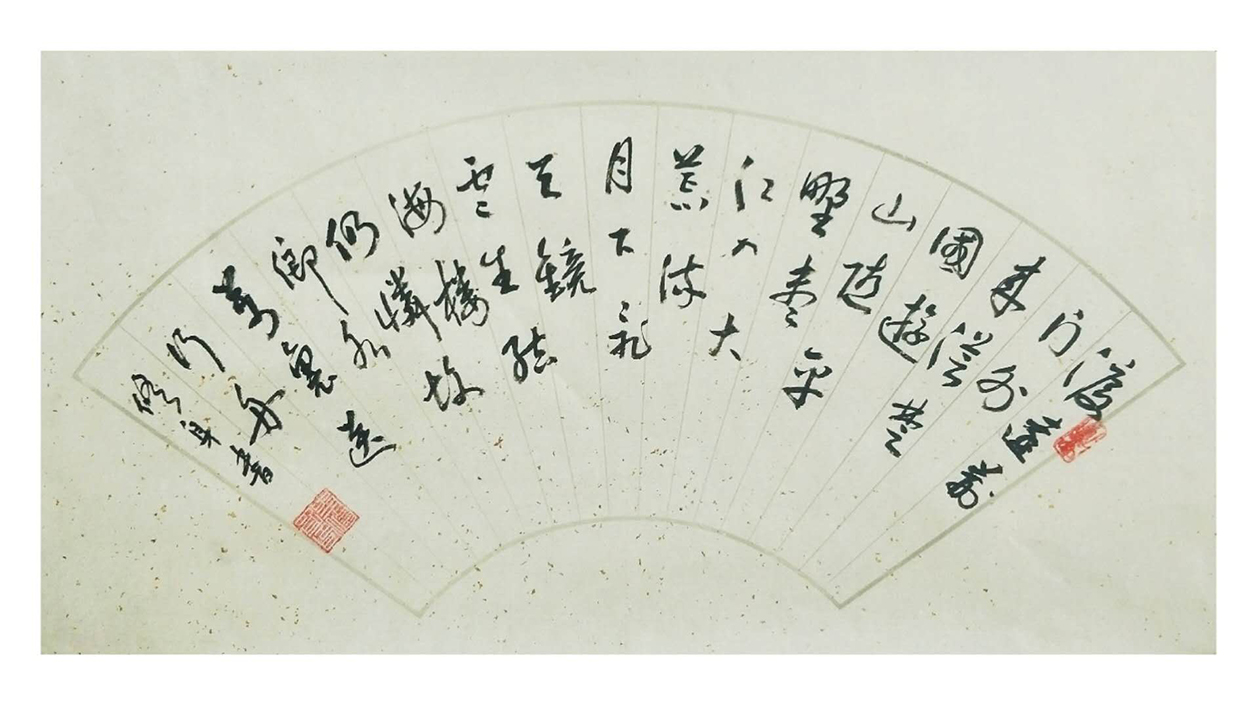 渡遠荆
门外
来從楚
國遊
山随平
野盡
江入大
荒流
月下飛
天鏡
雲生結
海樓
仍憐故
鄉水
萬裏送
行舟
書